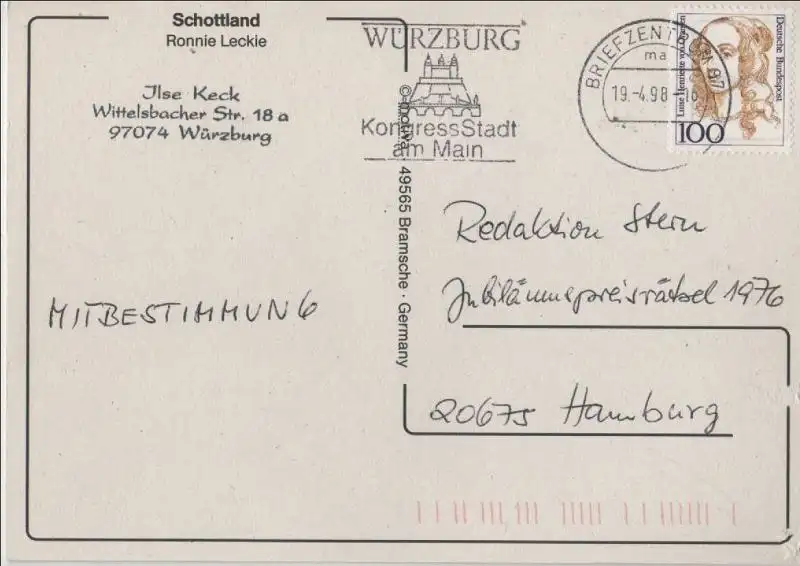 Schottland
Ronnie Leckie
Ilse Keck
Wittelsbacher Str. 18 a
97074 Würzburg
WÜRZBURG
KongressStadt
am Main
BRIEFZENTRUM 97
ma
19.-4.98-16
Deutsche Bundespost
Luise Henriette von Oranien
100
© motiva · 49565 Bramsche · Germany
MITBESTIMMUNG
Redaktion Stern
Jubiläumspreisrätsel 1976
20675 Hamburg